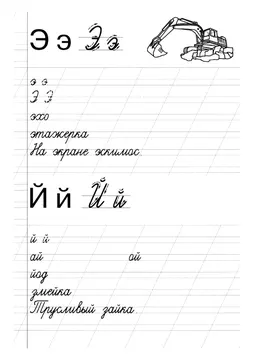 Э э Э э
э э
Э Э
эхо
этажерка
На экране эскимос.
Й й Й й
й й
ай ой
йод
змейка
Трусливый зайка.